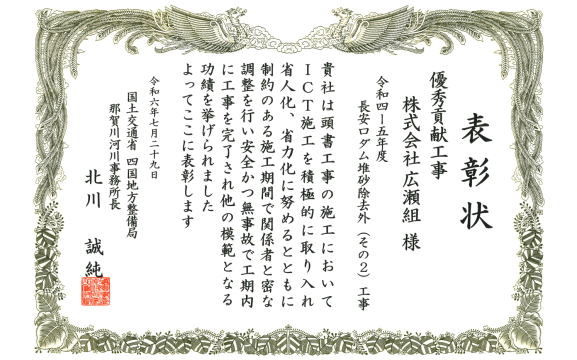 表彰状
優秀貢献工事
株式会社 広瀬組 様
令和四ー五年度
長安口ダム堆砂除去外(その2)工事
貴社は頭書工事の施工において
ICT施工を積極的に取り入れ
省人化、省力化に努めるとともに
制約のある施工期間で関係者と密な
調整を行い安全かつ無事故で工期内
に工事を完了され他の模範となる
功績を挙げられました
よってここに表彰します
令和六年七月二十九日
国土交通省 四国地方整備局
那賀川河川事務所長
北川 誠純